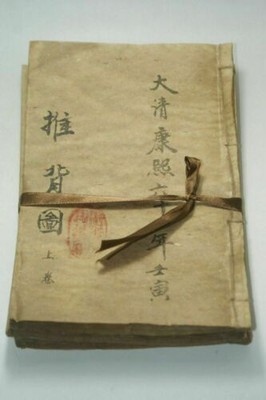 大清康熙六十年壬寅
推背圖
上卷